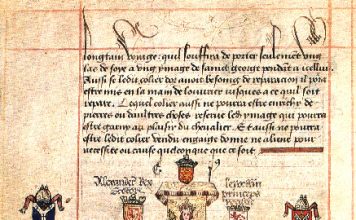 longtain voyage: quil souffira de porter seulement ung
las de soye a ung ymage de saint george pendant a icelluy
Aussi se ledit colier dor avoit besoing de reparacion il pora
estre mis en la main de louvrier jusques a ce quil soit
repare. Lequel colier aussi ne pourra estre enrichy de
pierres ou daultres choses reserve ledit ymage que pourra
estre garny au plaisir du chevalier. Et aussi ne pourra
estre ledit colier vendu engaige donne ne aliene pour
necessite ou cause quelconque que ce soit.
Alexander Rex
Scotorum
princeps